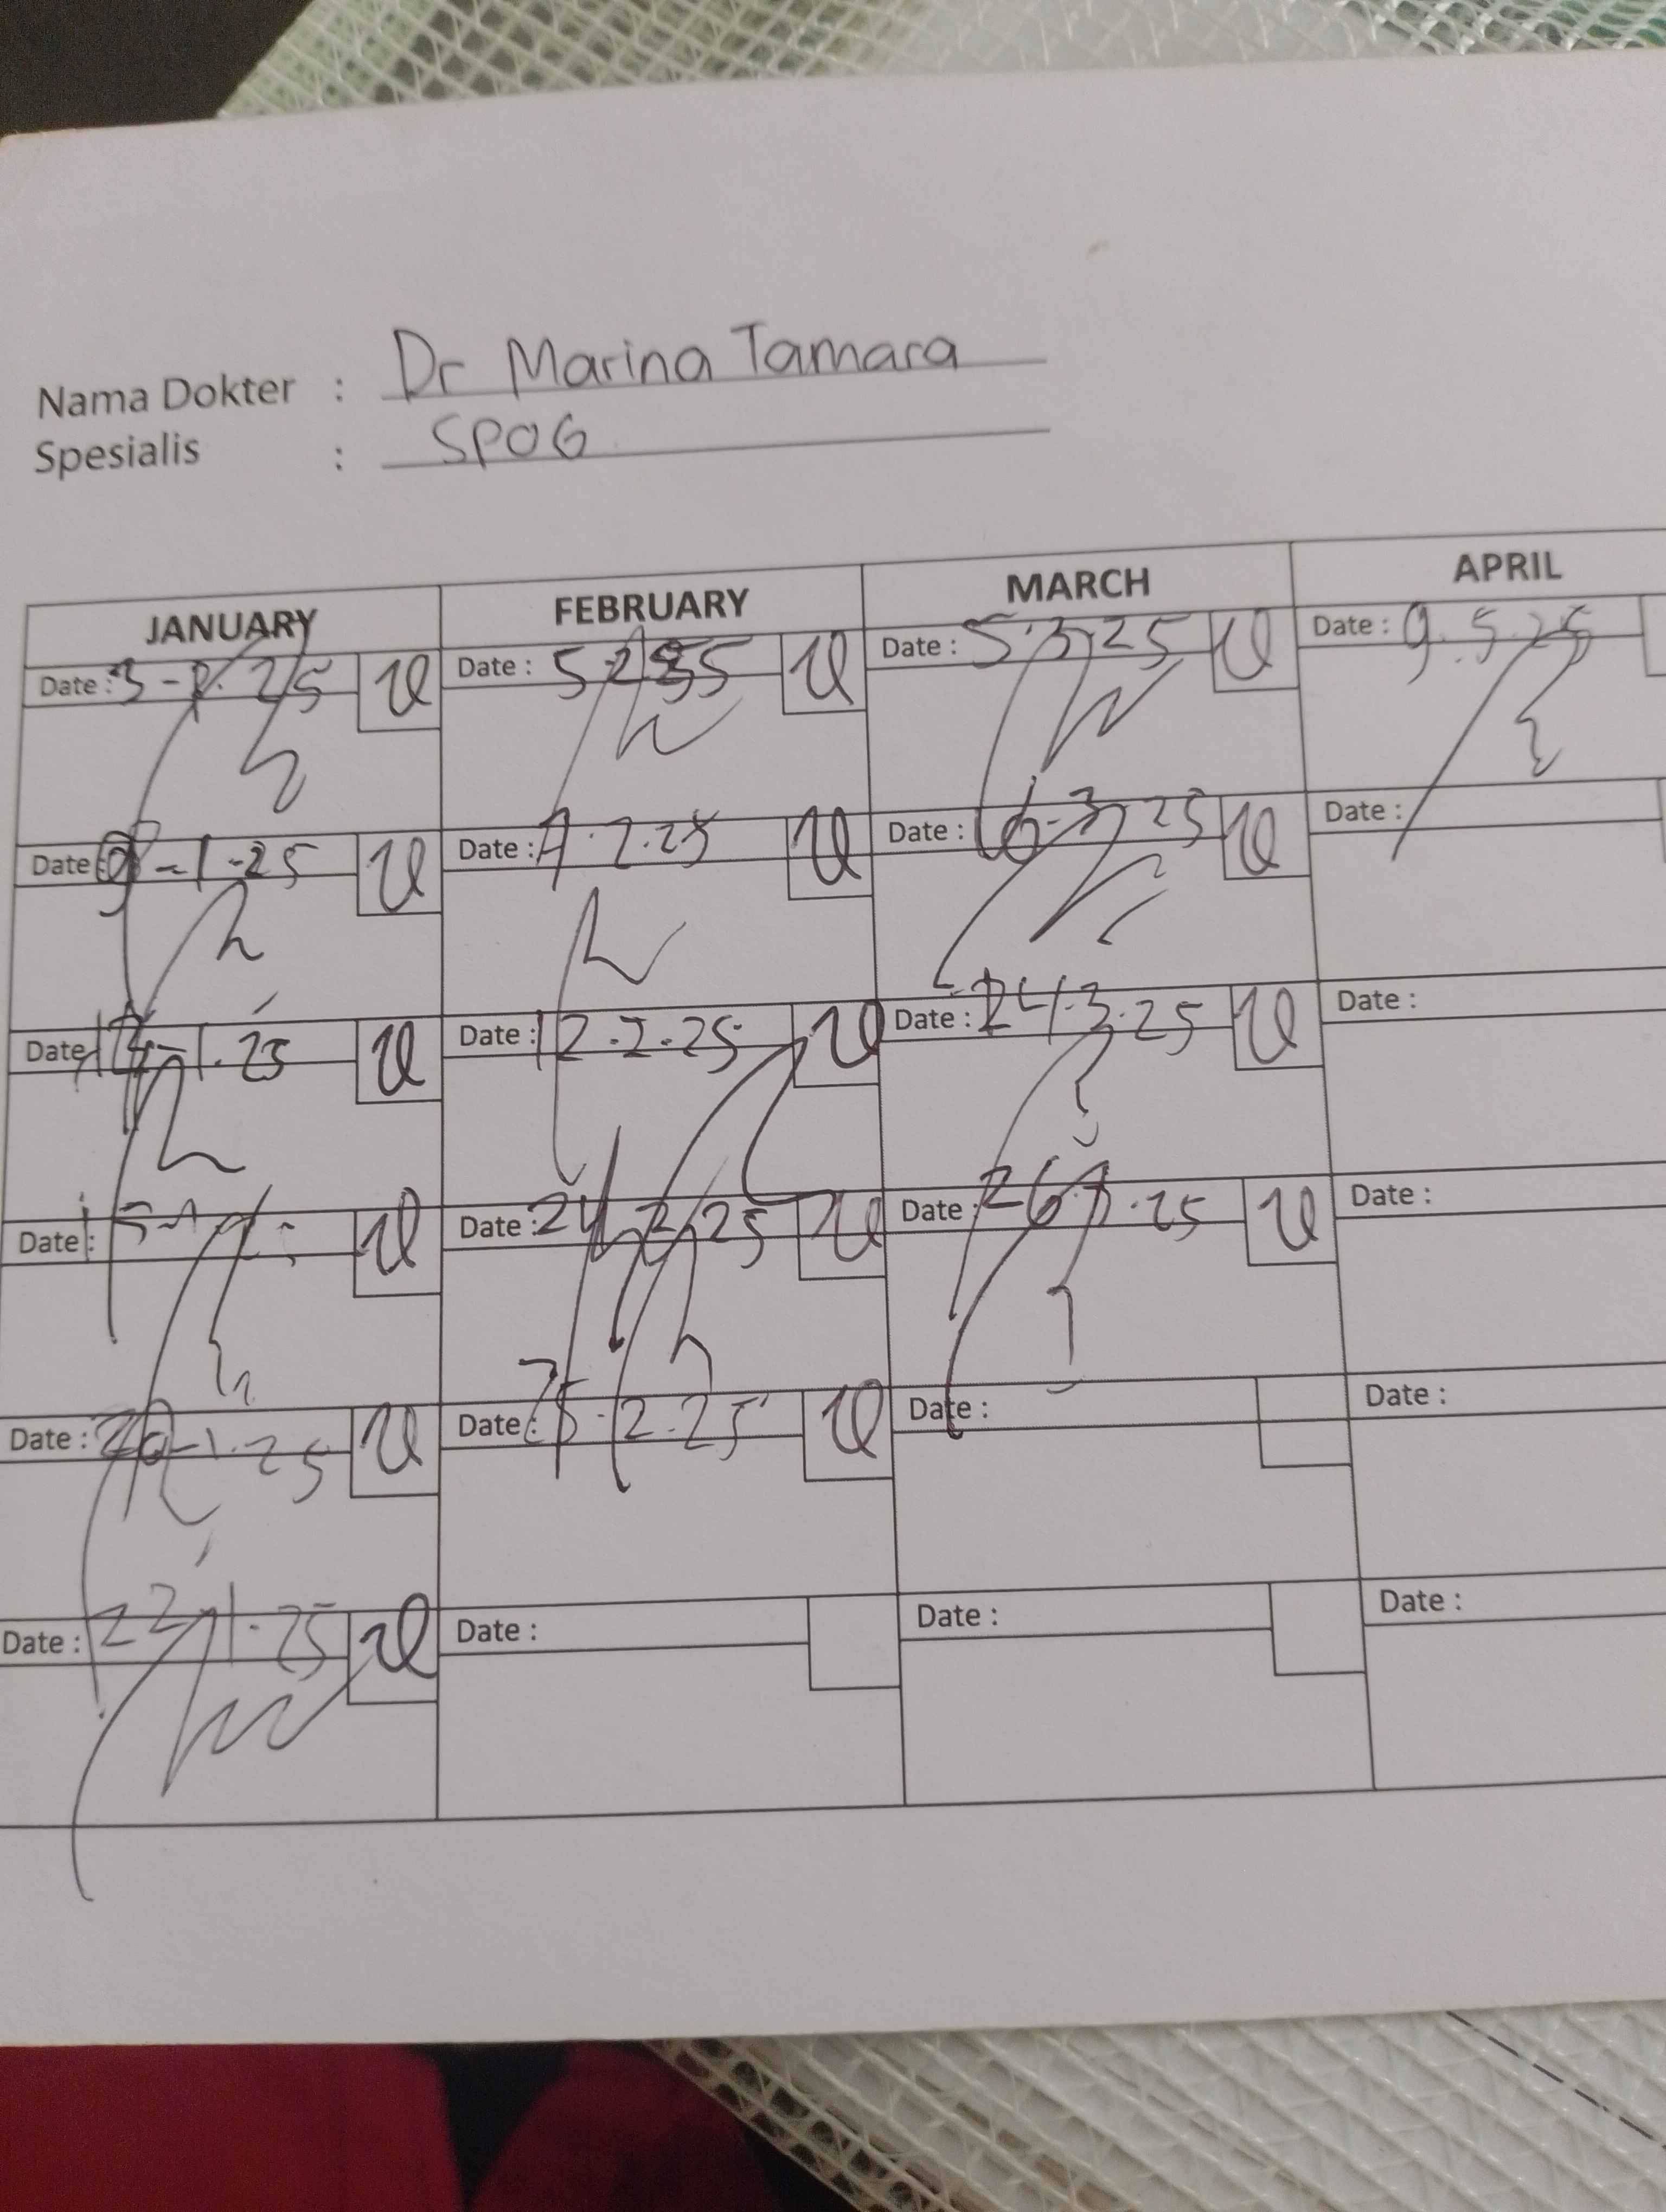 Nama Dokter : Dr Marina Tamara
Spesialis : SPOG
JANUARY FEBRUARY MARCH APRIL
Date : 3-1-25 Date : 5-2-25 Date : 5.3.25 Date : 9.5.25
Date : -1-25 Date : 7.2.25 Date : 6-3-25 Date :
Date : -1.25 Date : 12.2.25 Date : 24.3.25 Date :
Date : Date : 24 2 25 Date : 26.3.25 Date :
Date : 20-1.25 Date : 25.2.25 Date : Date :
Date : 22.1.25 Date : Date : Date :